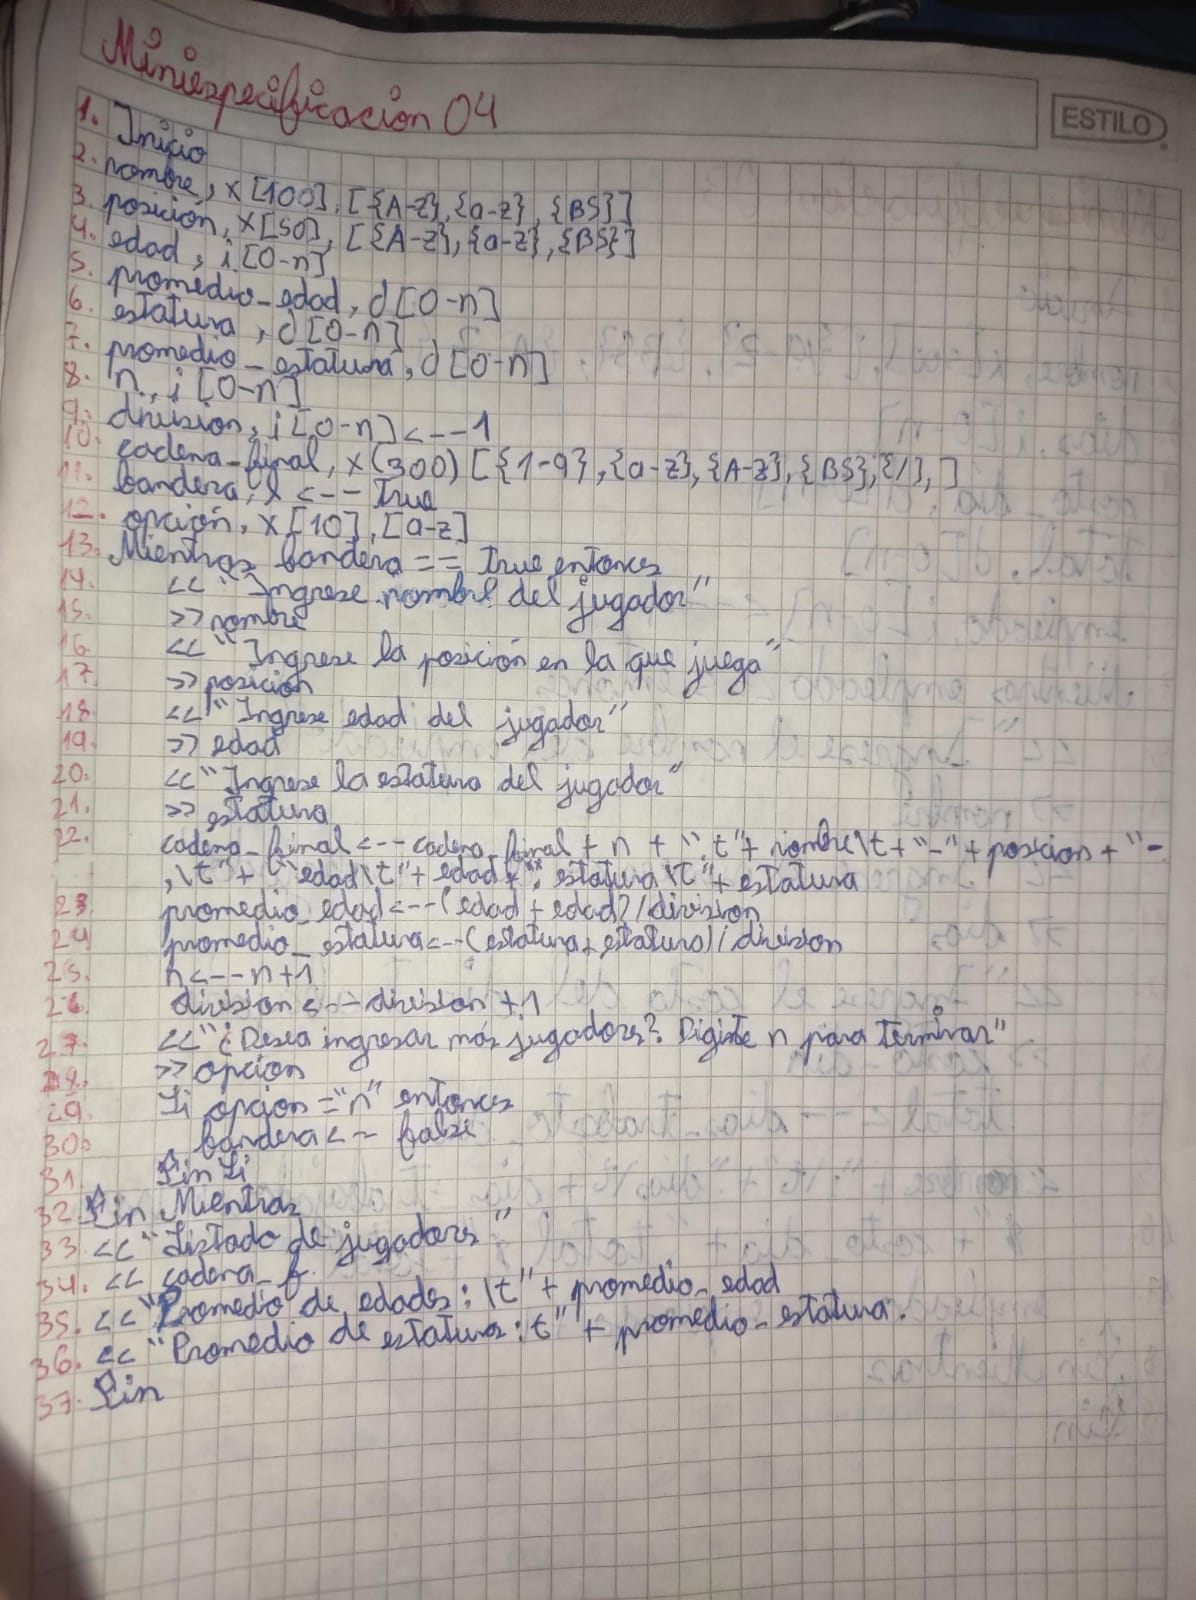 Miniespecificación 04
ESTILO
1. Inicio
2. nombre, x [100], [{A-Z}, {a-z}, {BS}]
3. posición, x[50], [{A-Z}, {a-z}, {BS}]
4. edad, i [0-n]
5. promedio_edad, d [0-n]
6. estatura, d [0-n]
7. promedio_estatura, d [0-n]
8. n, i [0-n]
9. division, i [0-n] <--1
10. cadena_final, x (300) [{1-9}, {a-z}, {A-Z}, {BS}, {/}, ]
11. bandera, l <-- True
12. opción, x [10], [a-z]
13. Mientras bandera == True entonces
14. << "Ingrese nombre del jugador"
15. >> nombre
16. << "Ingrese la posición en la que juega"
17. >> posición
18. << "Ingrese edad del jugador"
19. >> edad
20. << "Ingrese la estatura del jugador"
21. >> estatura
22. cadena_final <-- cadena_final + n + ".t" + nombre\t + "-" + posicion + "-
,\t" + "edad\t" + edad + ". estatura \t" + estatura
23 promedio_edad <-- (edad + edad)/division
24 promedio_estatura <-- (estatura + estatura)/division
25. n <-- n+1
26 division <-- division +1
27. << "¿Desea ingresar más jugadores? Digite n para Terminar"
28. >> opcion
29. Si opcion = "n" entonces
30. bandera <-- false
31 Fin Si
32 Fin Mientras
33. << "Listado de jugadores"
34. << cadena_f.
35. << "Promedio de edades: \t" + promedio_edad
36. << "Promedio de estatura: t" + promedio_estatura.
37. Fin